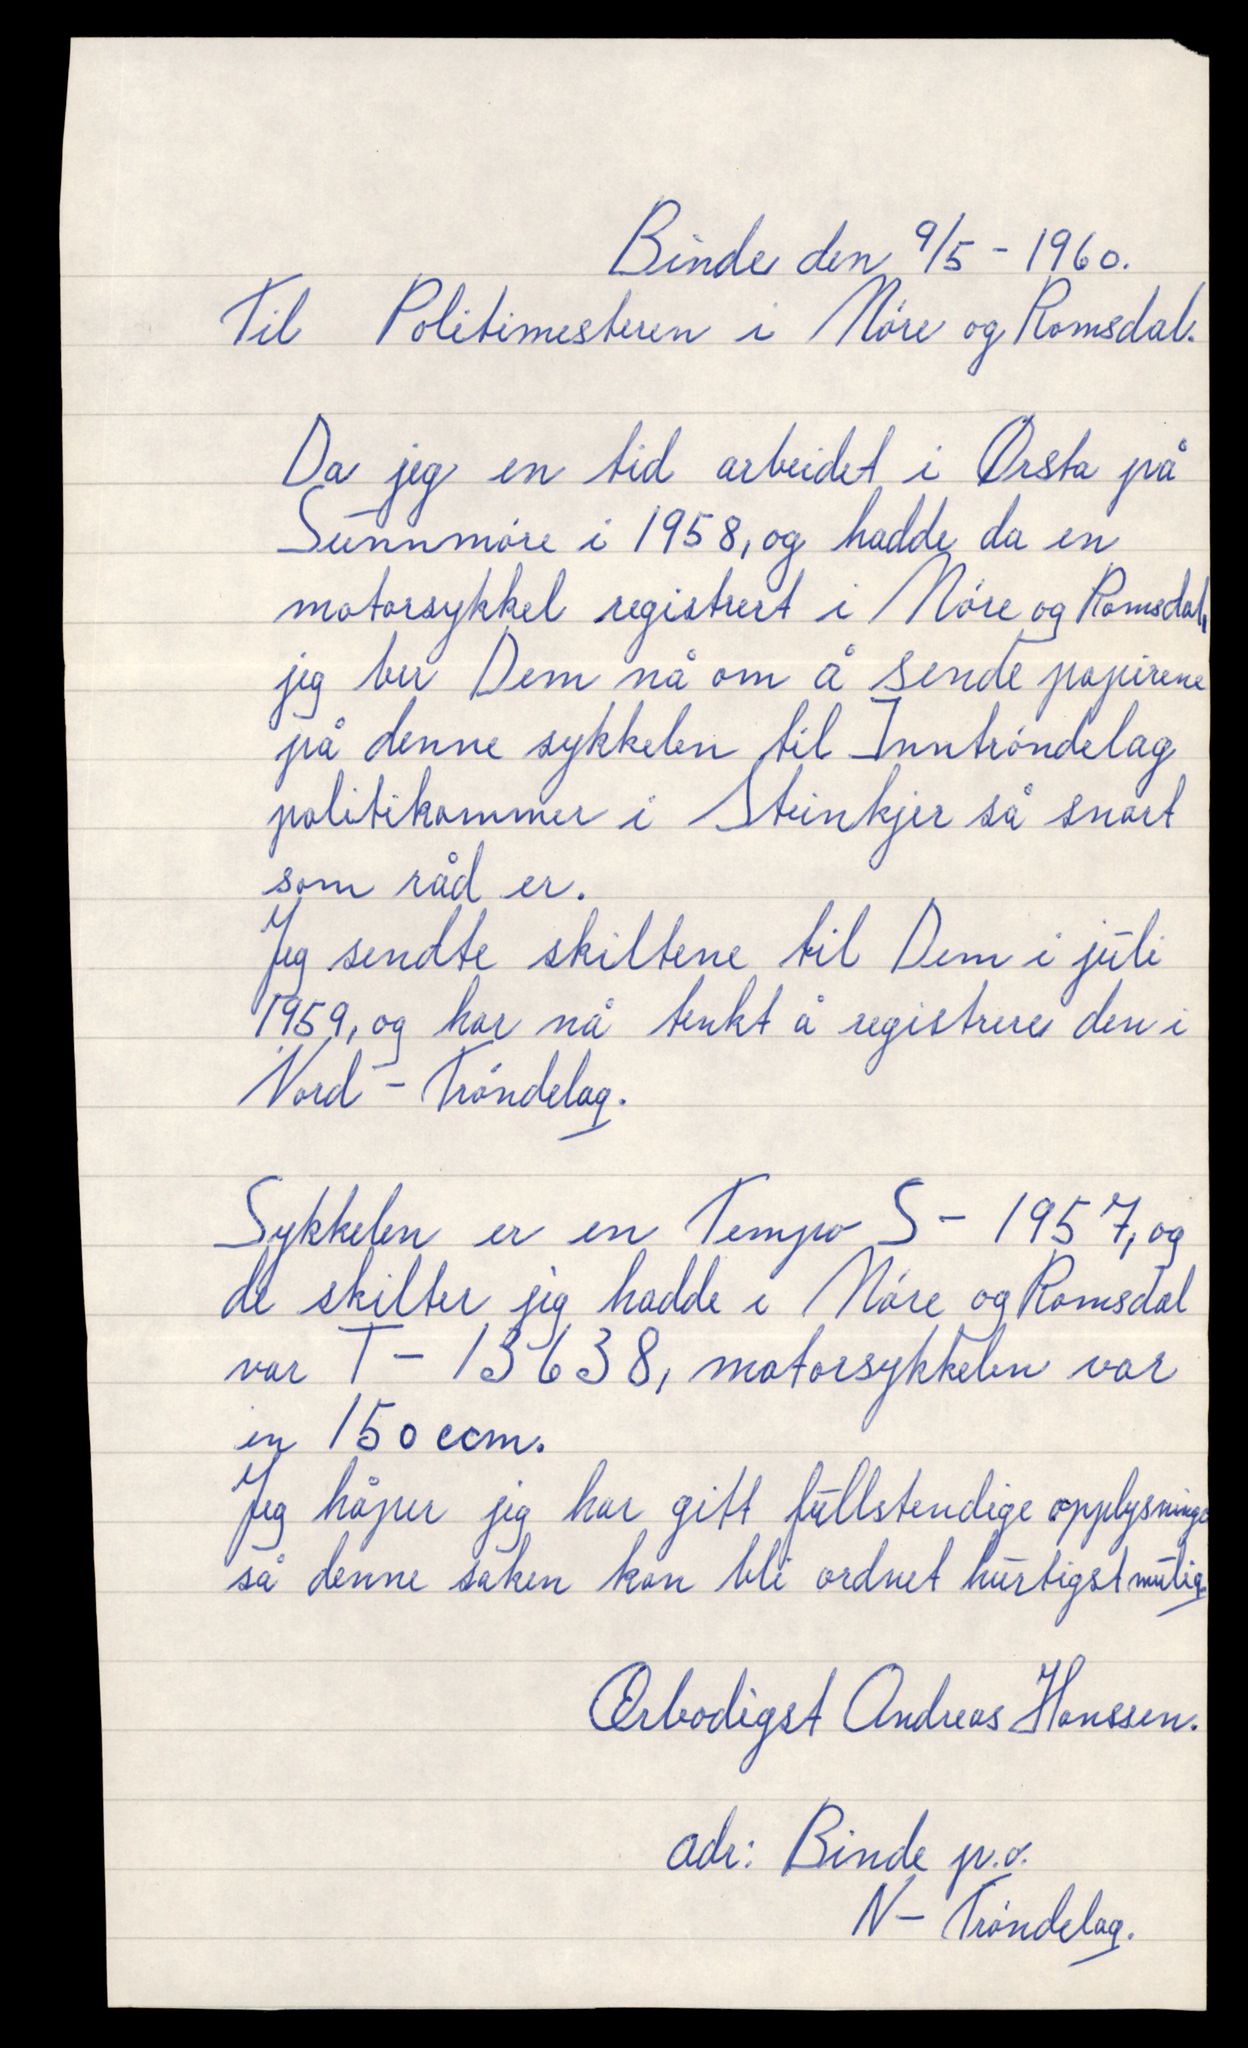 Binde den 9/5 - 1960.
Til Politimesteren i Móre og Romsdal.
Da jeg en tid arbeidet i Ørsta på
Sunnmóre i 1958, og hadde da en
motorsykkel registrert i Móre og Romsdal,
jeg ber Dem nå om å sende papirene
på denne sykkelen til Inntróndelag
politikammer i Steinkjer så snart
som råd er.
Jeg sendte skiltene til Dem i juli
1959, og har nå tenkt å registrere den i
Nord - Tróndelag.
Sykkelen er en Tempo S - 1957, og
de skilter jeg hadde i Móre og Romsdal
var T - 13638, motorsykkelen var
en 150 ccm.
Jeg håper jeg har gitt fullstendige opplysninge
så denne saken kan bli ordnet hurtigst mulig.
Ærbodigst Andreas Hanssen.
adr: Binde p.o.
N - Tróndelag.